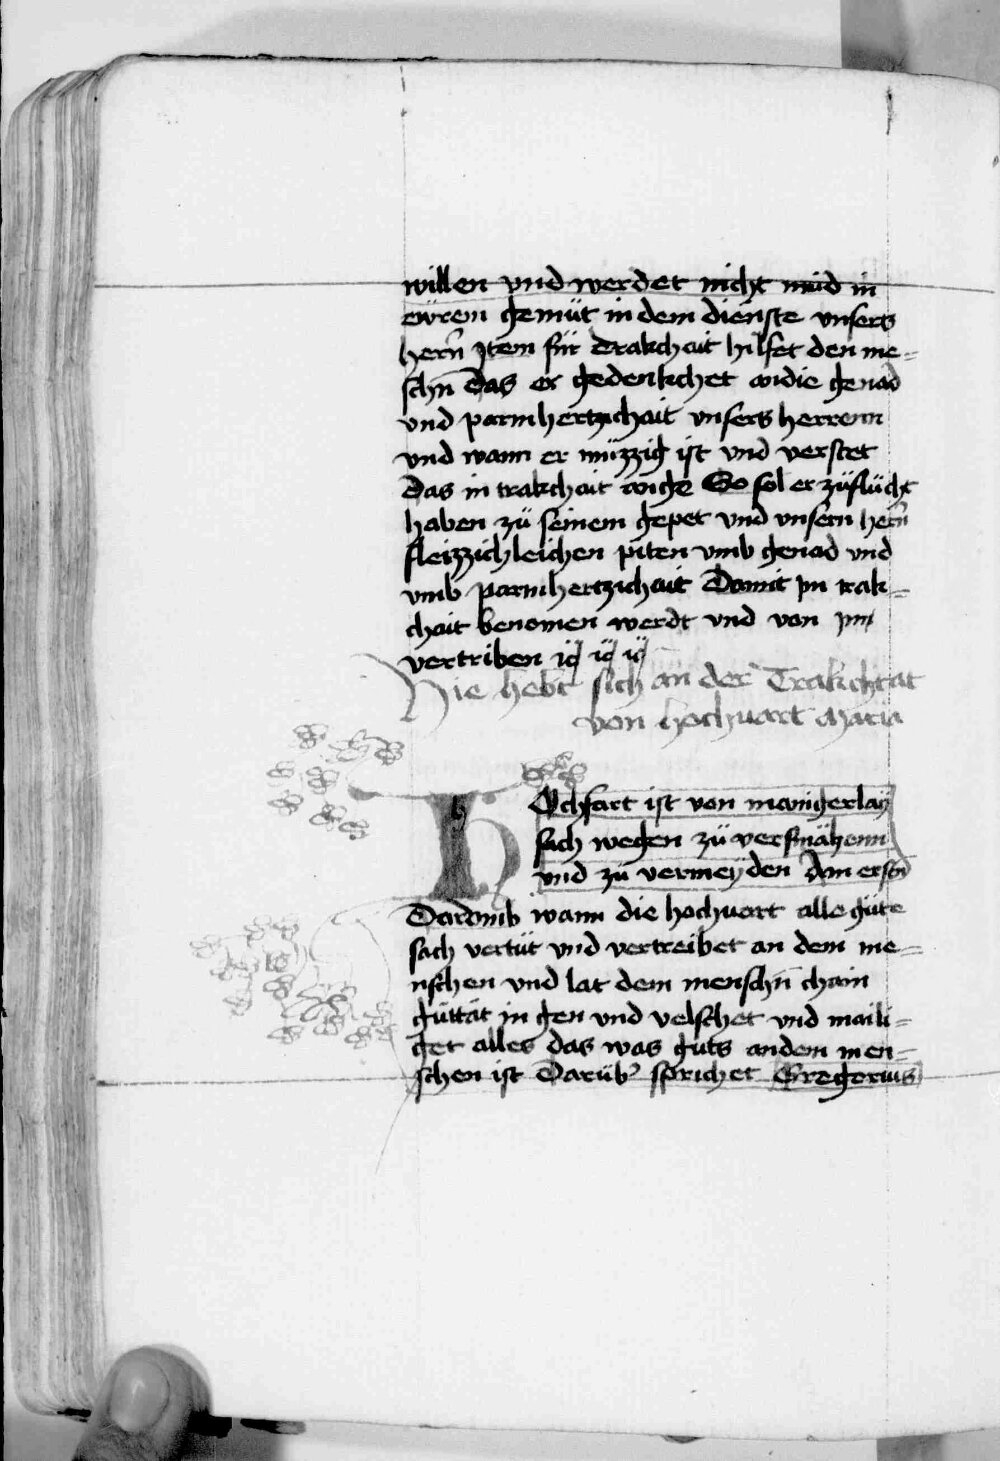 willen vnd werdet nicht müd in
ewrem gemüt in dem dienste vnsers
herñ Jtem für trakchait hilfet den me=
schñ das er gedenkchet an die genad
vnd parmhertzichait vnsers herrenn
vnd wann er müzzig ist vnd verstet
das in trakchait ange So sol er züflücht
haben zü seinem gepet vnd vnsern herñ
fleizzichleichen piten vmb genad vnd
vmb parmhertzichait Damit ym trak=
chait benomen werdt vnd von ym
vertriben
Hie hebt sich an der Trakchtat
von hochuart Maria
HOchfart ist von manigerlay
sach wegen zü versmähenn
vnd zü vermeyden Zam ersten
Darümb wann die hochuart alle güte
sach vertüt vnd vertreibet an dem me=
nschen vnd lat dem menschñ chain
güttät in gen vnd velschet vnd maili=
get alles das was guts an dem men=
schen ist Darüb' sprichet Gregorius